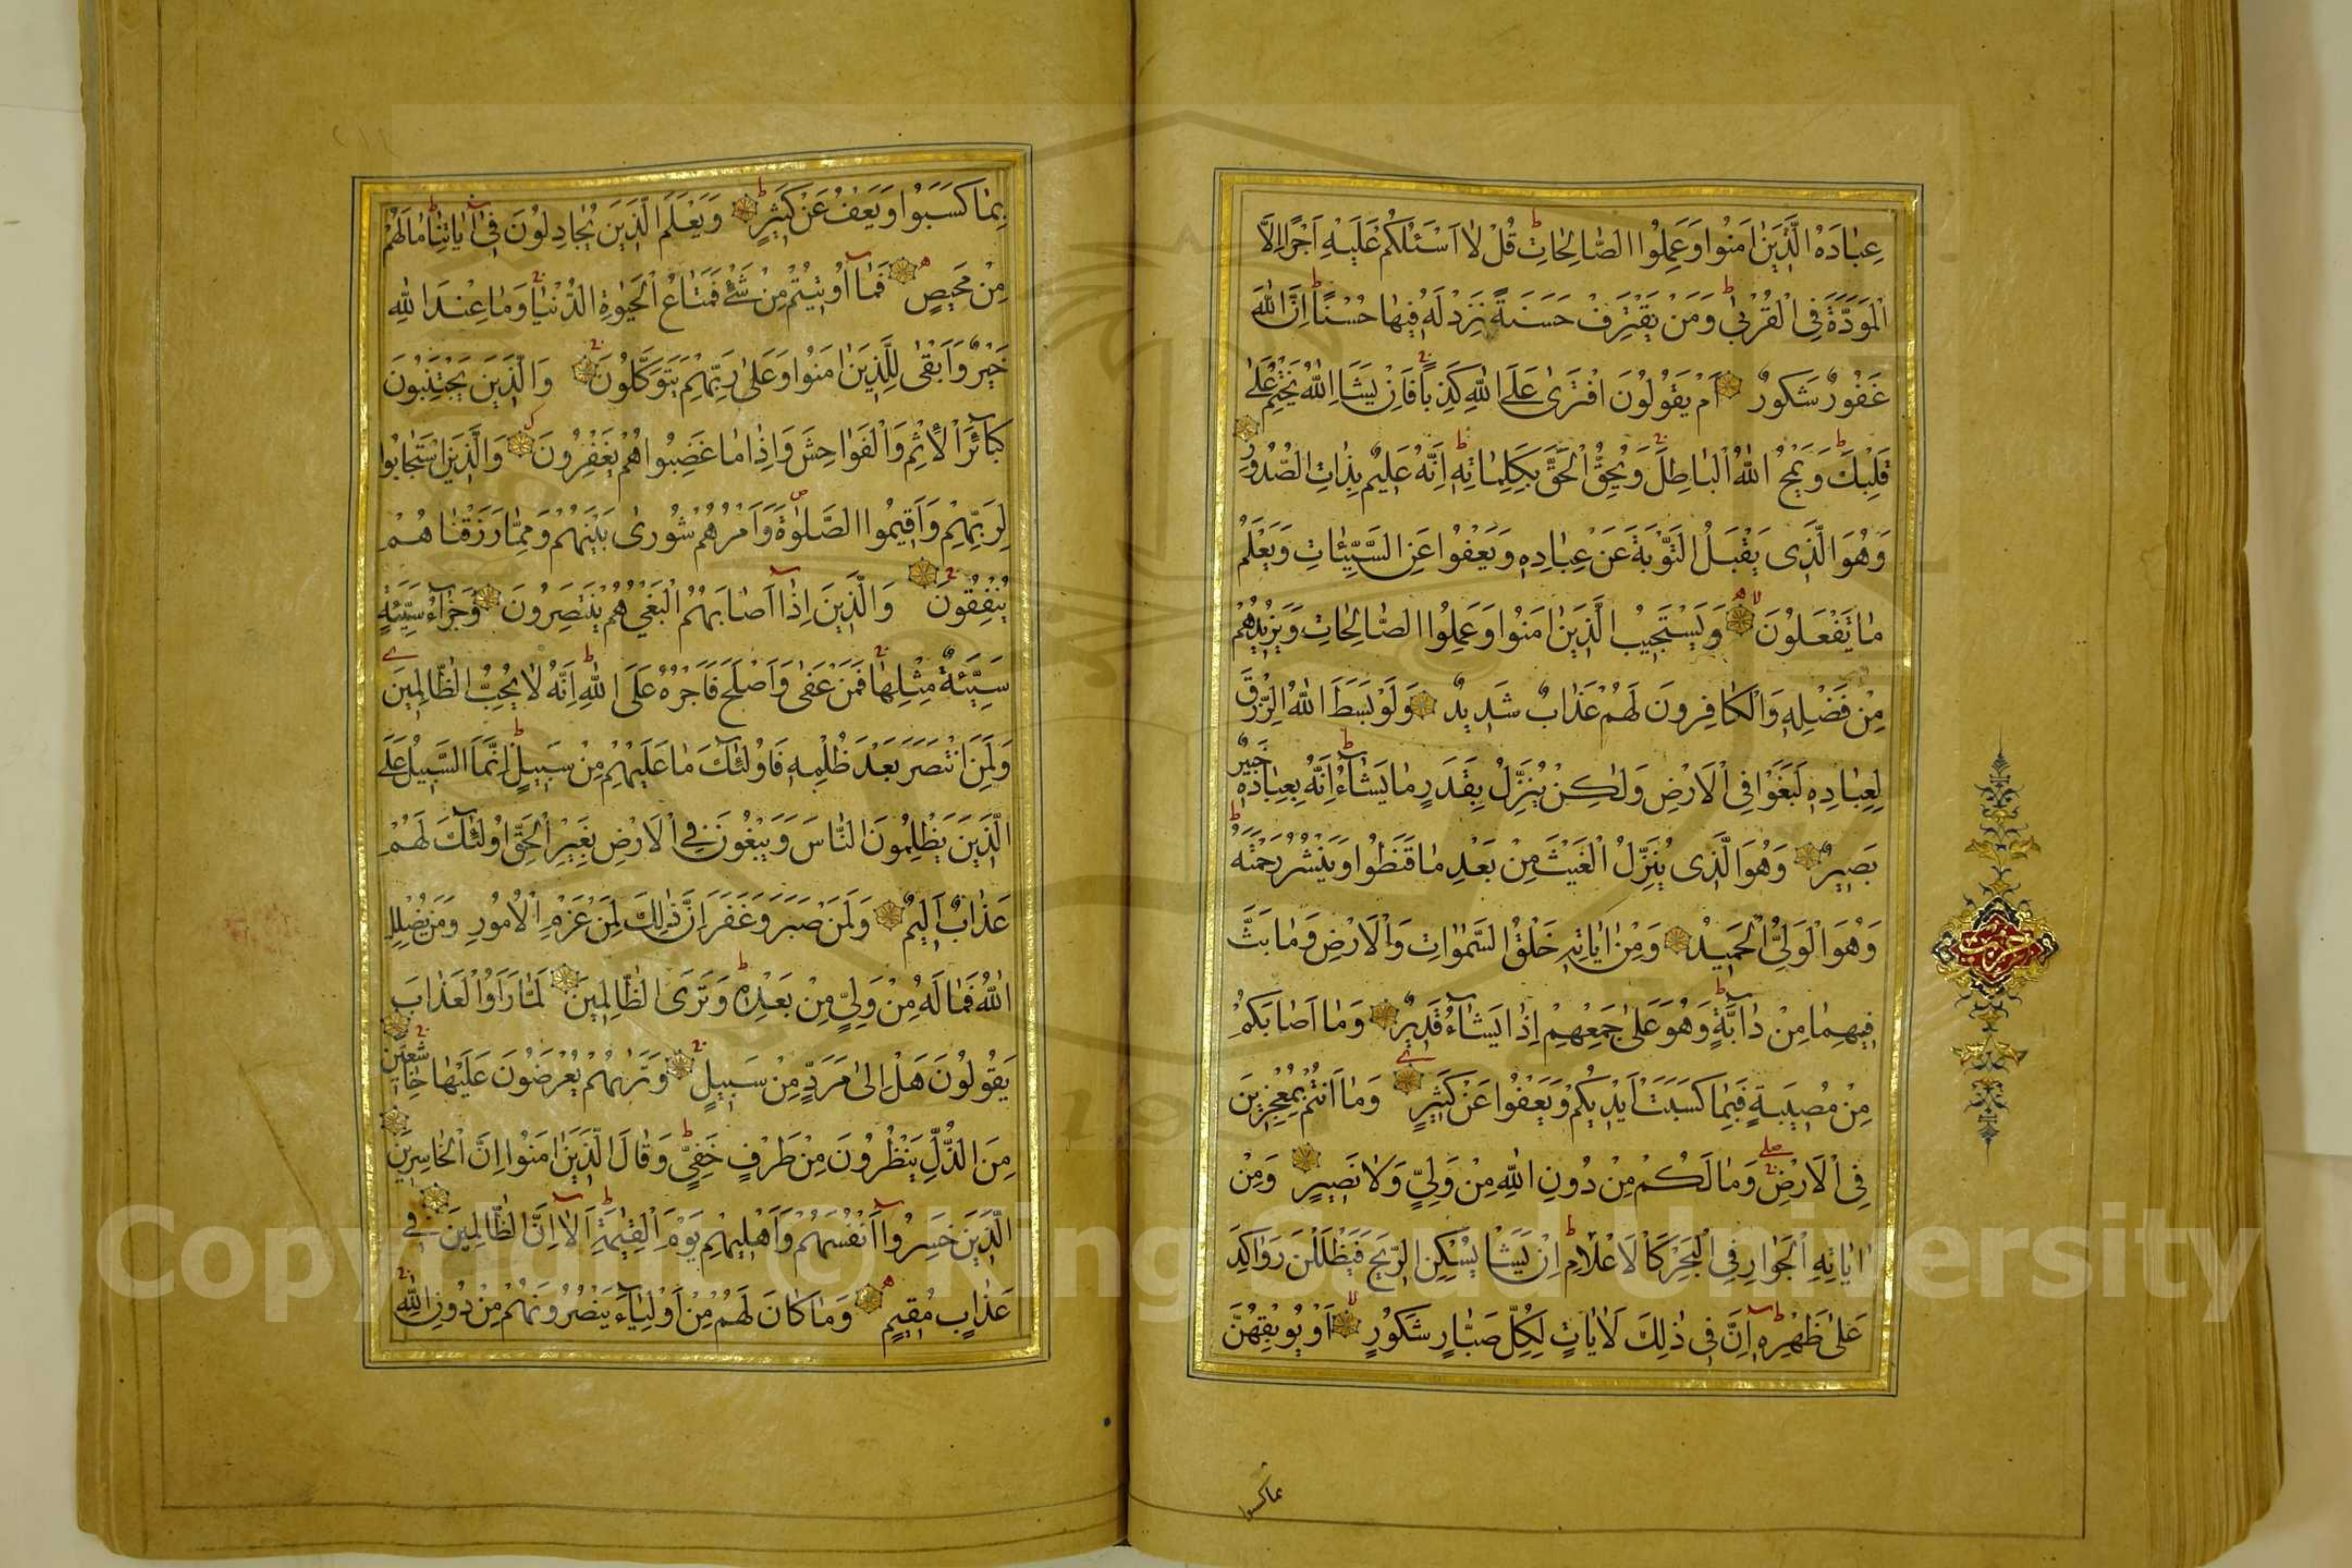 عِبَادَهُ الَّذِينَ اٰمَنُوا وَعَمِلُوا الصَّالِحَاتِ قُلْ لَا اَسْئَلُكُمْ عَلَيْهِ اَجْرًا اِلَّا
الْمَوَدَّةَ فِى الْقُرْبٰى وَمَنْ يَقْتَرِفْ حَسَنَةً نَزِدْ لَهُ فِيهَا حُسْنًا اِنَّ اللّٰهَ
غَفُورٌ شَكُورٌ اَمْ يَقُولُونَ افْتَرٰى عَلَى اللّٰهِ كَذِبًا فَاِنْ يَشَاِ اللّٰهُ يَخْتِمْ عَلٰى
قَلْبِكَ وَيَمْحُ اللّٰهُ الْبَاطِلَ وَيُحِقُّ الْحَقَّ بِكَلِمَاتِهِ اِنَّهُ عَلِيمٌ بِذَاتِ الصُّدُورِ
وَهُوَ الَّذِى يَقْبَلُ التَّوْبَةَ عَنْ عِبَادِهِ وَيَعْفُوا عَنِ السَّيِّئَاتِ وَيَعْلَمُ
مَا تَفْعَلُونَ وَيَسْتَجِيبُ الَّذِينَ اٰمَنُوا وَعَمِلُوا الصَّالِحَاتِ وَيَزِيدُهُمْ
مِنْ فَضْلِهِ وَالْكَافِرُونَ لَهُمْ عَذَابٌ شَدِيدٌ وَلَوْ بَسَطَ اللّٰهُ الرِّزْقَ
لِعِبَادِهِ لَبَغَوْا فِى الْاَرْضِ وَلٰكِنْ يُنَزِّلُ بِقَدَرٍ مَا يَشَآءُ اِنَّهُ بِعِبَادِهِ خَبِيرٌ
بَصِيرٌ وَهُوَ الَّذِى يُنَزِّلُ الْغَيْثَ مِنْ بَعْدِ مَا قَنَطُوا وَيَنْشُرُ رَحْمَتَهُ
وَهُوَ الْوَلِىُّ الْحَمِيدُ وَمِنْ اٰيَاتِهِ خَلْقُ السَّمٰوَاتِ وَالْاَرْضِ وَمَا بَثَّ
فِيهِمَا مِنْ دَآبَّةٍ وَهُوَ عَلٰى جَمْعِهِمْ اِذَا يَشَآءُ قَدِيرٌ وَمَا اَصَابَكُمْ
مِنْ مُصِيبَةٍ فَبِمَا كَسَبَتْ اَيْدِيكُمْ وَيَعْفُوا عَنْ كَثِيرٍ وَمَا اَنْتُمْ بِمُعْجِزِينَ
فِى الْاَرْضِ وَمَا لَكُمْ مِنْ دُونِ اللّٰهِ مِنْ وَلِىٍّ وَلَا نَصِيرٍ وَمِنْ
اٰيَاتِهِ الْجَوَارِ فِى الْبَحْرِ كَالْاَعْلَامِ اِنْ يَشَا يُسْكِنِ الرِّيحَ فَيَظْلَلْنَ رَوَاكِدَ
عَلٰى ظَهْرِهِ اِنَّ فِى ذٰلِكَ لَاٰيَاتٍ لِكُلِّ صَبَّارٍ شَكُورٍ اَوْ يُوبِقْهُنَّ
بِمَا كَسَبُوا وَيَعْفُ عَنْ كَثِيرٍ وَيَعْلَمَ الَّذِينَ يُجَادِلُونَ فِى اٰيَاتِنَا مَا لَهُمْ
مِنْ مَحِيصٍ فَمَا اُوتِيتُمْ مِنْ شَىْءٍ فَمَتَاعُ الْحَيٰوةِ الدُّنْيَا وَمَا عِنْدَ اللّٰهِ
خَيْرٌ وَاَبْقٰى لِلَّذِينَ اٰمَنُوا وَعَلٰى رَبِّهِمْ يَتَوَكَّلُونَ وَالَّذِينَ يَجْتَنِبُونَ
كَبَآئِرَ الْاِثْمِ وَالْفَوَاحِشَ وَاِذَا مَا غَضِبُوا هُمْ يَغْفِرُونَ وَالَّذِينَ اسْتَجَابُوا
لِرَبِّهِمْ وَاَقِيمُوا الصَّلٰوةَ وَاَمْرُهُمْ شُورٰى بَيْنَهُمْ وَمِمَّا رَزَقْنَاهُمْ
يُنْفِقُونَ وَالَّذِينَ اِذَا اَصَابَهُمُ الْبَغْىُ هُمْ يَنْتَصِرُونَ وَجَزَآءُ سَيِّئَةٍ
سَيِّئَةٌ مِثْلُهَا فَمَنْ عَفٰى وَاَصْلَحَ فَاَجْرُهُ عَلَى اللّٰهِ اِنَّهُ لَا يُحِبُّ الظَّالِمِينَ
وَلَمَنِ انْتَصَرَ بَعْدَ ظُلْمِهِ فَاُولٰٓئِكَ مَا عَلَيْهِمْ مِنْ سَبِيلٍ اِنَّمَا السَّبِيلُ عَلَى
الَّذِينَ يَظْلِمُونَ النَّاسَ وَيَبْغُونَ فِى الْاَرْضِ بِغَيْرِ الْحَقِّ اُولٰٓئِكَ لَهُمْ
عَذَابٌ اَلِيمٌ وَلَمَنْ صَبَرَ وَغَفَرَ اِنَّ ذٰلِكَ لَمِنْ عَزْمِ الْاُمُورِ وَمَنْ يُضْلِلِ
اللّٰهُ فَمَا لَهُ مِنْ وَلِىٍّ مِنْ بَعْدِهِ وَتَرَى الظَّالِمِينَ لَمَّا رَاَوُا الْعَذَابَ
يَقُولُونَ هَلْ اِلٰى مَرَدٍّ مِنْ سَبِيلٍ وَتَرٰيهُمْ يُعْرَضُونَ عَلَيْهَا خَاشِعِينَ
مِنَ الذُّلِّ يَنْظُرُونَ مِنْ طَرْفٍ خَفِىٍّ وَقَالَ الَّذِينَ اٰمَنُوا اِنَّ الْخَاسِرِينَ
الَّذِينَ خَسِرُوا اَنْفُسَهُمْ وَاَهْلِيهِمْ يَوْمَ الْقِيٰمَةِ اَلَا اِنَّ الظَّالِمِينَ فِى
عَذَابٍ مُقِيمٍ وَمَا كَانَ لَهُمْ مِنْ اَوْلِيَآءَ يَنْصُرُونَهُمْ مِنْ دُونِ اللّٰهِ
Copyright © King Saud University